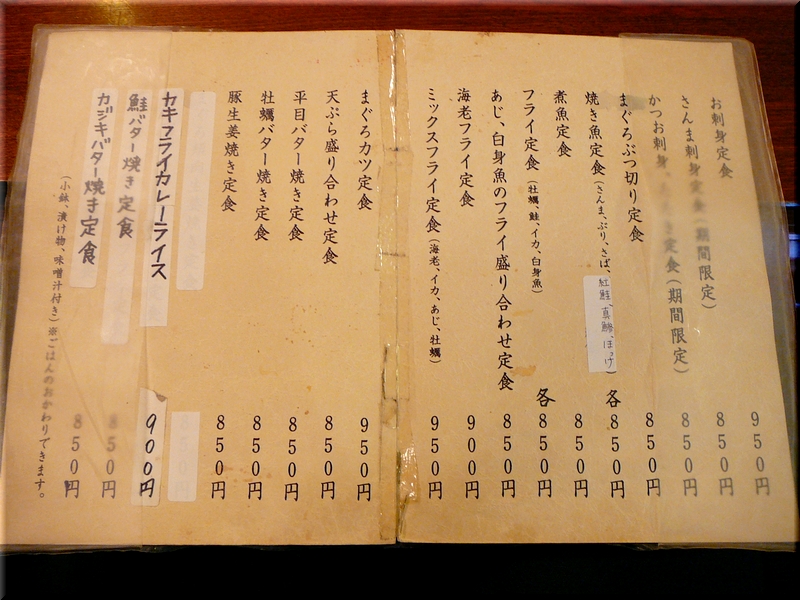 お刺身定食 950円
さんま刺身定食(期間限定) 850円
かつお刺身、き定食(期間限定) 850円
まぐろぶつ切り定食 850円
焼き魚定食(さんま、ぶり、さば、紅鮭、真鯵、ほっけ) 各850円
煮魚定食 850円
フライ定食(牡蠣、鮭、イカ、白身魚) 各850円
あじ、白身魚のフライ盛り合わせ定食 850円
海老フライ定食 900円
ミックスフライ定食(海老、イカ、あじ、牡蠣) 950円
まぐろカツ定食 950円
天ぷら盛り合わせ定食 850円
平目バター焼き定食 850円
牡蠣バター焼き定食 850円
豚生姜焼き定食 850円
カキフライカレーライス 900円
鮭バター焼き定食 850円
カジキバター焼き定食 850円
(小鉢、漬け物、味噌汁付き)※ごはんのおかわりできます。